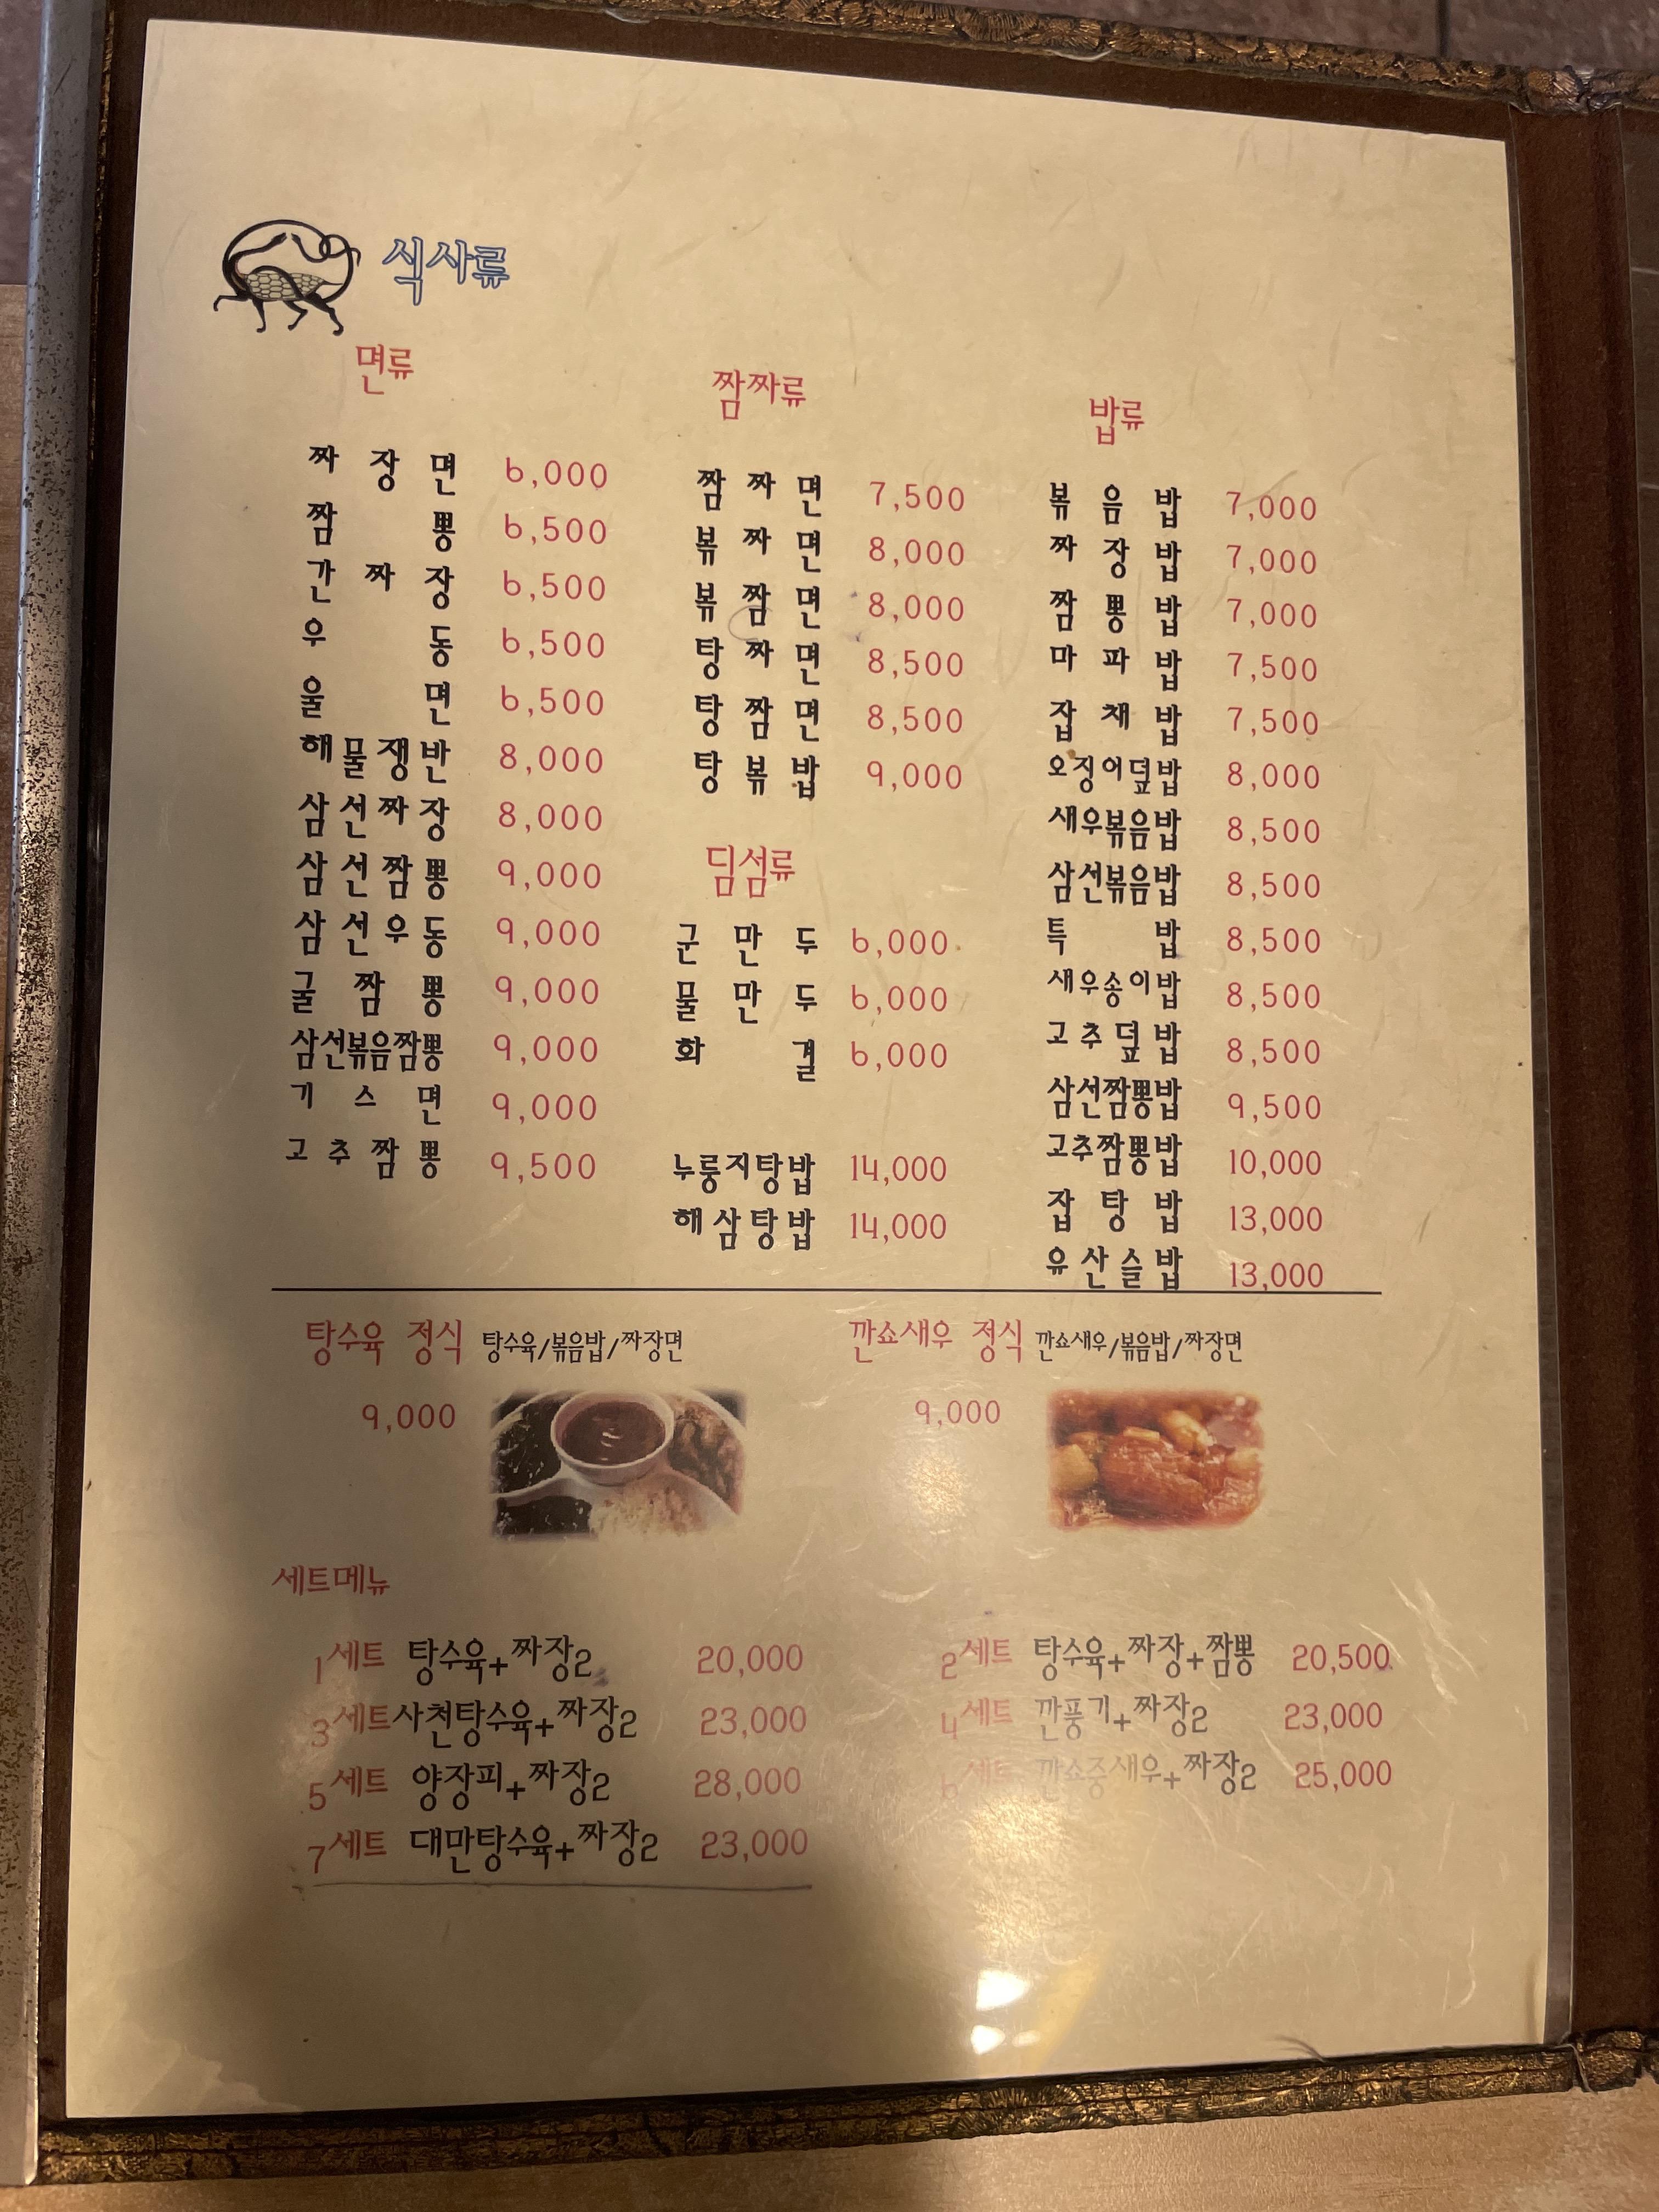 식사류
면류
짜장면 6,000
짬뽕 6,500
간짜장 6,500
우동 6,500
울면 6,500
해물쟁반 8,000
삼선짜장 8,000
삼선짬뽕 9,000
삼선우동 9,000
굴짬뽕 9,000
삼선볶음짬뽕 9,000
기스면 9,000
고추짬뽕 9,500
짬짜류
짬짜면 7,500
볶짜면 8,000
볶짬면 8,000
탕짜면 8,500
탕짬면 8,500
탕볶밥 9,000
딤섬류
군만두 6,000
물만두 6,000
화결 6,000
누룽지탕밥 14,000
해삼탕밥 14,000
밥류
볶음밥 7,000
짜장밥 7,000
짬뽕밥 7,000
마파밥 7,500
잡채밥 7,500
오징어덮밥 8,000
새우볶음밥 8,500
삼선볶음밥 8,500
특밥 8,500
새우송이밥 8,500
고추덮밥 8,500
삼선짬뽕밥 9,500
고추짬뽕밥 10,000
잡탕밥 13,000
유산슬밥 13,000
탕수육 정식 탕수육/볶음밥/짜장면
9,000
깐쇼새우 정식 깐쇼새우/볶음밥/짜장면
9,000
세트메뉴
1세트 탕수육+짜장2 20,000
2세트 탕수육+짜장+짬뽕 20,500
3세트 사천탕수육+짜장2 23,000
4세트 깐풍기+짜장2 23,000
5세트 양장피+짜장2 28,000
6세트 깐쇼중새우+짜장2 25,000
7세트 대만탕수육+짜장2 23,000